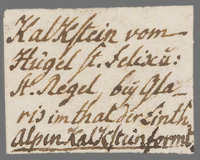 Kalkstein vom
Hügel st. Felix u:
st. Regel, bÿ Gla-
ris im thal der Linth
Alpin Kalksteinformt.